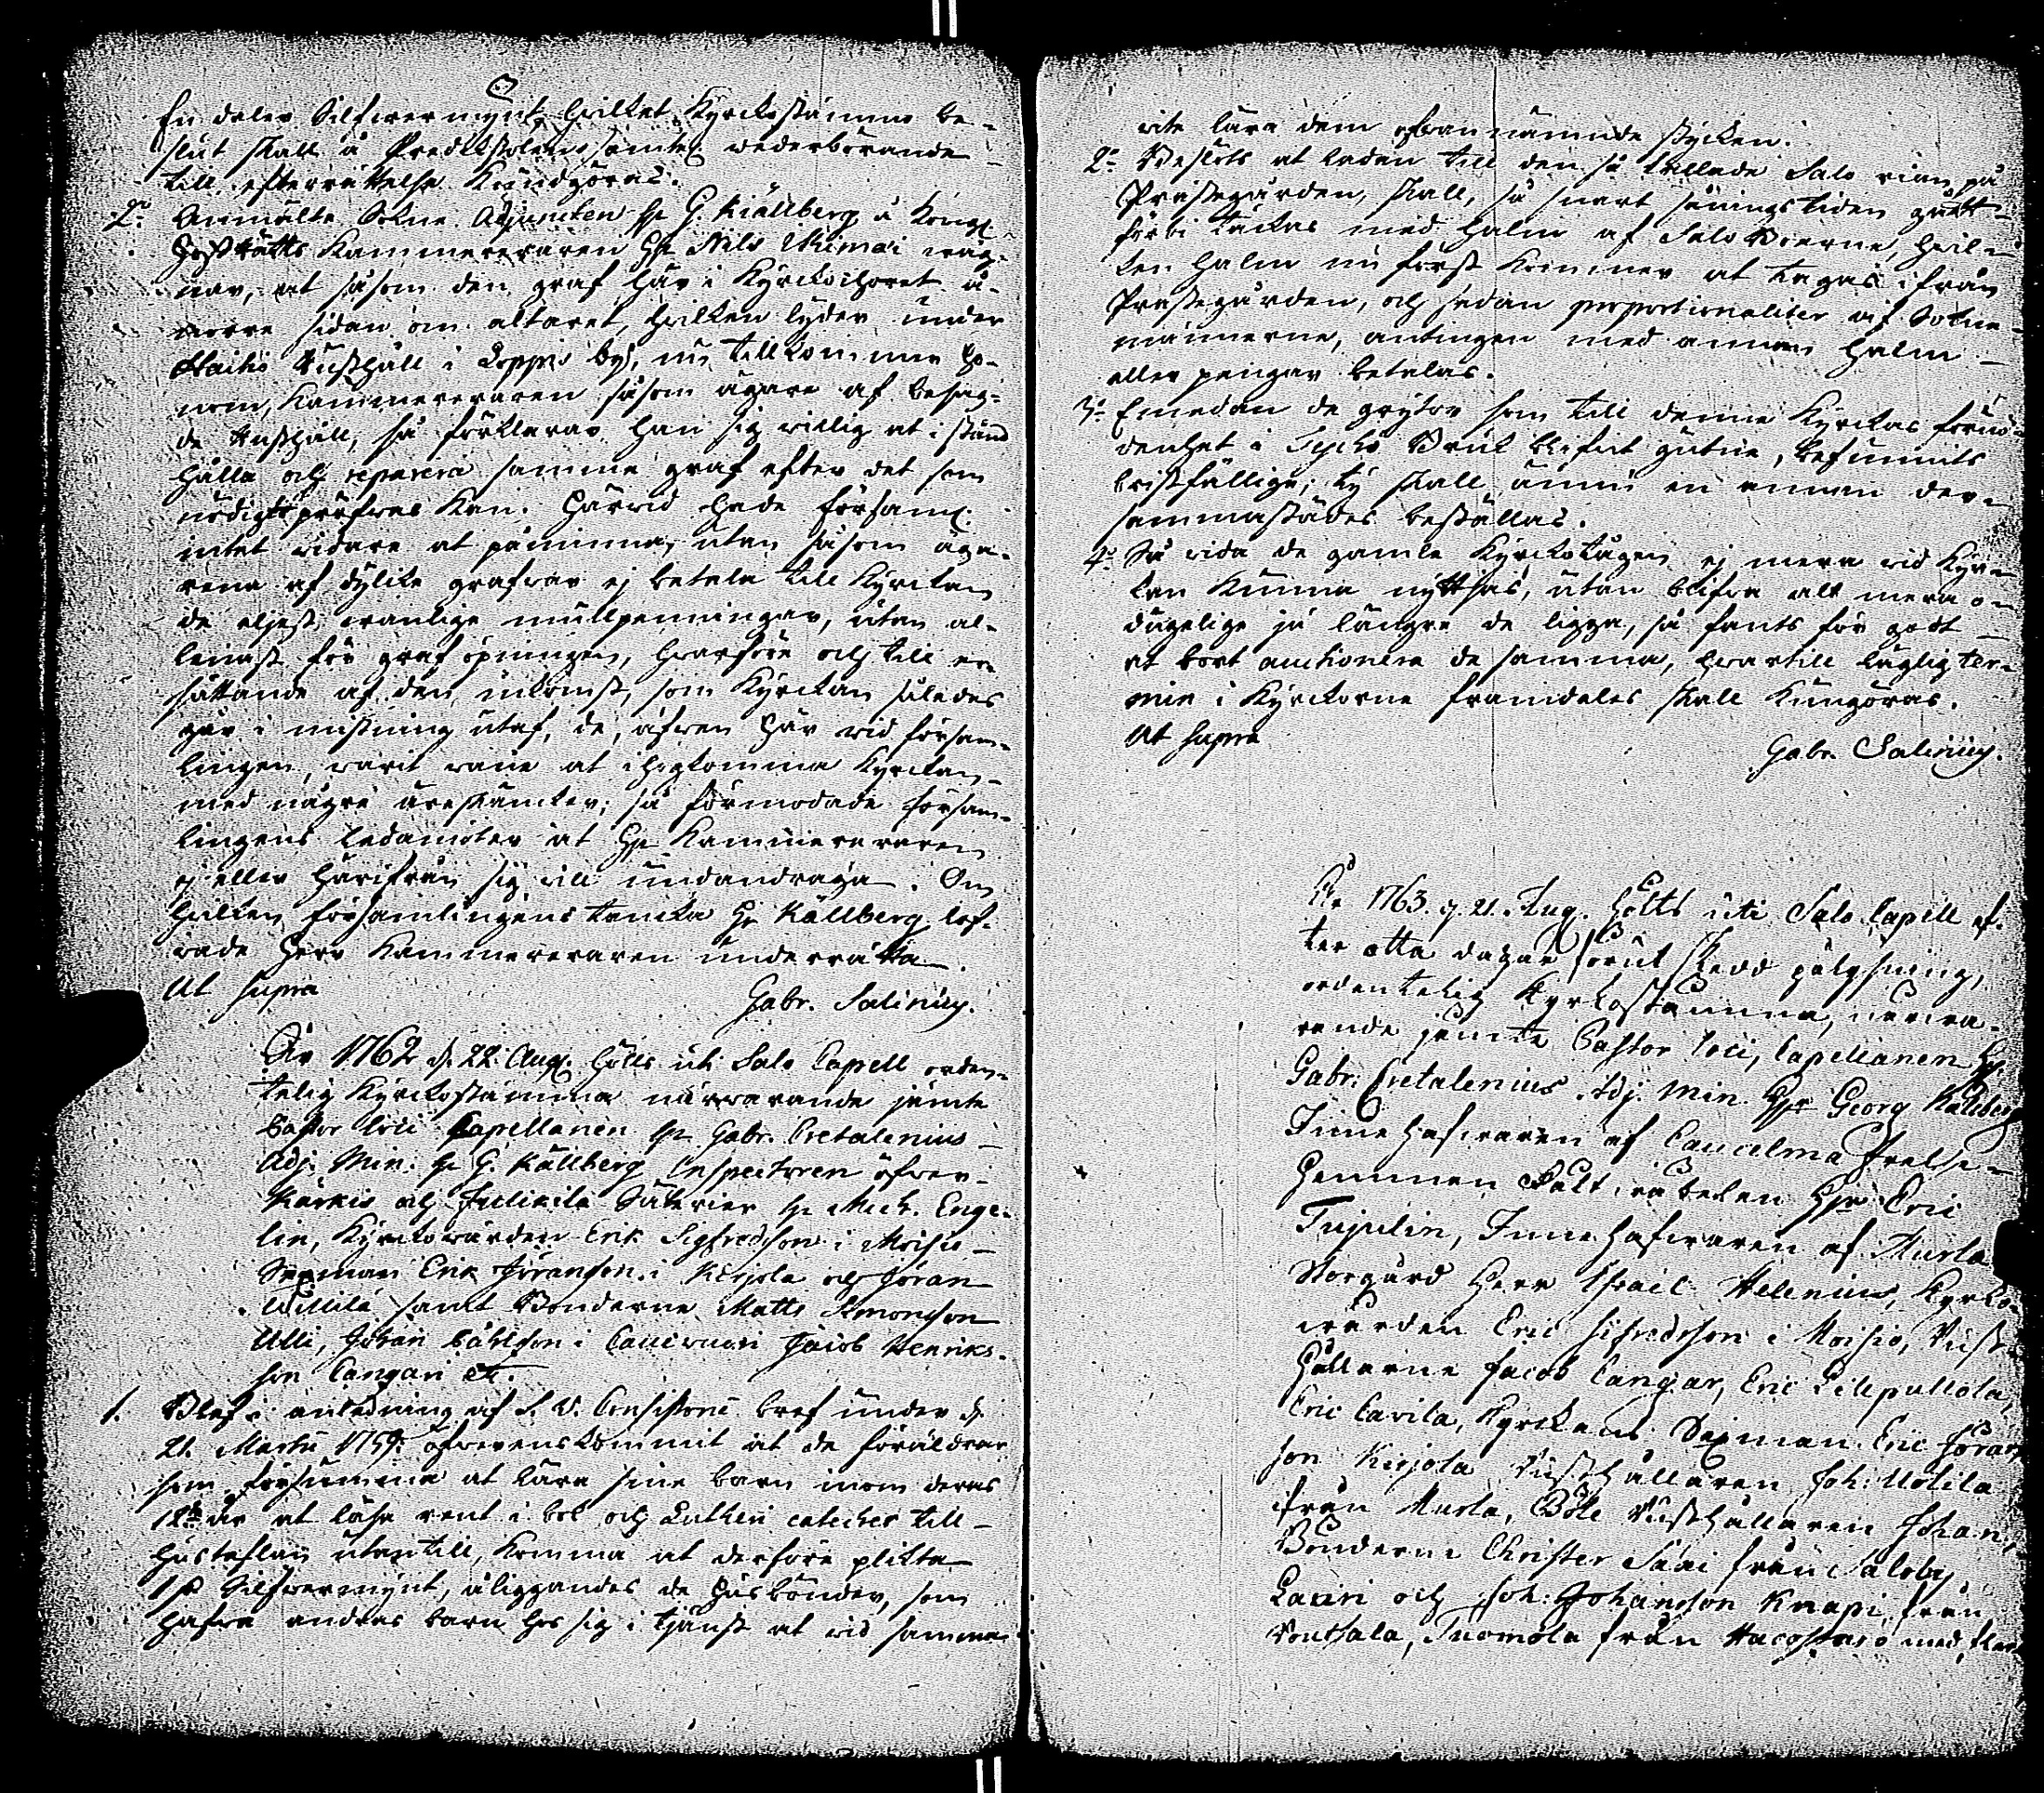 En daler Silfwermynt, hvilket Kyrckostämmo be-
slut skall å Predikstolen samtel. wederbörande
till efterrättelse kundgöras.
2:o Anmälte Sokne Adjuncten Hr G. Källberg å Kongl.
Hofrätts Kammereraren Hr Nils Ikimai wäg-
nar, at såsom den graf här i Kyrckochoret å
norre sidan om altaret, hvilken lyder under
Haihio Rusthåll i Loppis by, nu tillkommer Ho-
nom, Kammereraren såsom ägare af besag-
de Rusthåll, så förklarar han sig willig at i stånd
hålla och reparera samma graf efter det som
nödigt pröfwas kan. Härwid hade församl.
intet widare at påminna, utan såsom äga-
rena af dylika grafwar ej betala till Kyrckan
de eljest wanlige mullpenningar, utan al-
lenast för graf öpningen, hwarföre och till er-
sättande af den inkomst, som Kyrckan således
går i mistning utaf, de, äfwen här wid försam-
lingen, warit wane at ihogkomma Kyrckan
med någre äreskäncker; så förmodade försam-
lingens ledamöter at Hr Kammereraren
ej eller härifrån sig will undandraga. Om
hvilken församlingens tancka Hr Källberg lof-
wade Herr Kammereraren underrätta.
Ut supra
Gabr. Salinius.
År 1762 d. 22 Aug. hölts uti Salo Capell orden-
telig Kyrckostämma närwarande jämte
Pastor loci Capellanen Hr Gabr. Cretalenius
Adj. Min. Hr G. Källberg Inspectoren öfwer
Kärkis och Juckila Säterier Hr Mich. Enge-
lin, Kyrckowärden Erik Sigfredsson i Moisio
Sexman Erik Jöransson i Kirjola och Jöran
Uttila samt Bönderne Matts Simonsson
Ulli, Johan Påhlsson i Jacob Henriks-
son Cangari etc.
1. Blef i anledning af S. V. Consistorii bref under d.
21. Martii 1759. öfwerenskommit at de föräldrar
som försumma at lära sine barn inom deras
12:te år at läsa rent i bok och Lutheri cateches till
hustaflan utantill, komma at derföre plikta
1 Silfwermynt, åliggandes de husbönder, som
hafwa andras barn hos sig i tjänst at wid samma
wite lära dem ofwannämnde stycken.
2:o Beslöts at ladan till den så kallade Salo rian på
Prästegården, skall, så snart såningstiden gått
förbi täckas med halm af Salo Boerne, hvil-
ken halm nu först kommer at tagas ifrån
Prästegården, och sedan proportionaliter af Sokne-
männerne, antingen med annan halm
eller pengar betalas.
3:o Emedan de grytor som till denne Kyrckas förnö-
denhet i Tycko Bruk blifwit gutne, befunnits
bristfällige; ty skall ännu en annan der-
sammastädes beställas.
4:o Så wida de gamla Kyrckotågen ej mera wid Kyrc-
kan kunna nyttjas, utan blifwa alt mera o-
dugelige ju längre de ligga, så fants för godt
at bort auctionera de samma, hwartill läglig ter-
min i Kyrckorne framdeles skall kungöras.
Ut supra
Gabr. Salinius.
År 1763. d. 21. Aug. hölts uti Salo Capell ef-
ter otta dagar förut skedd pålysning,
ordentelig Kyrkostämma, närwa-
rande jemte Pastor loci, Capellanen Hr
Gabr. Cretalenius. Adj. Min. Hr Georg Källberg
Innehafwaren af Caucelma frelse-
hemman Hr Eric
Tujulin, Innehafwaren af Murla
Storgård Herr Israel Helenius, Kyrko-
wärden Eric Sifredsson i Moisio, Rust-
hållarne Jacob Cangar, Eric Pilepullola,
Eric Cavila, Kyrckans Sexman Eric Jöran-
son Kirjola Rusthållaren Joh: Uotila
ifrån Murla, Böle Rusthållaren Johan,
Bönderne Christer Saari från Saloby
Lauri och Joh: Johansson Knapi, från
Vouttala, Tuomola från Hacostaro med flera